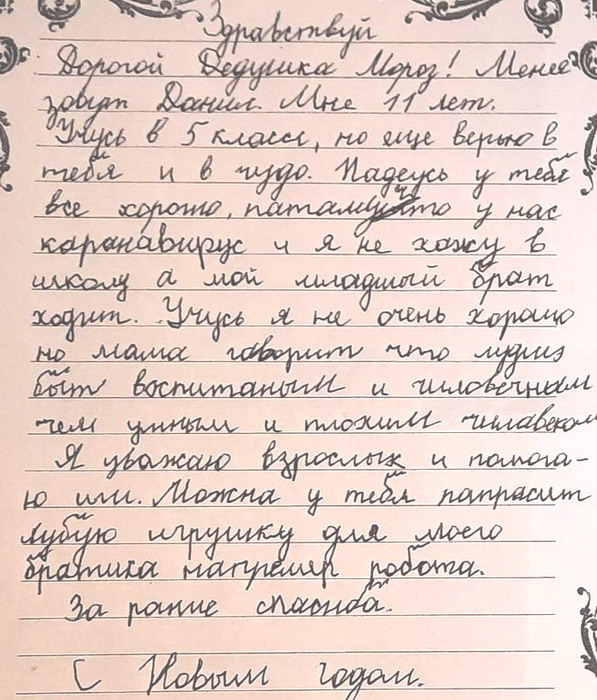 Здравствуй
Дорогой Дедушка Мороз! Меня
зовут Данил. Мне 11 лет.
Учусь в 5 классе, но еще верью в
тебя и в чудо. Надеусь у тебя
все хорошо, патамучто у нас
каранавирус и я не хажу в
школу а мой младшый брат
ходит. Учусь я не очень хорашо
но мама говорит что лудше
быт воспитаным и чиловечным
чем умным и плохим чилавеком
Я уважаю взрослых и помога-
ю им. Можна у тебя папрасит
лубую игрушку для моего
братика напремер робота.
За рание спасиба.
С Новым годом.